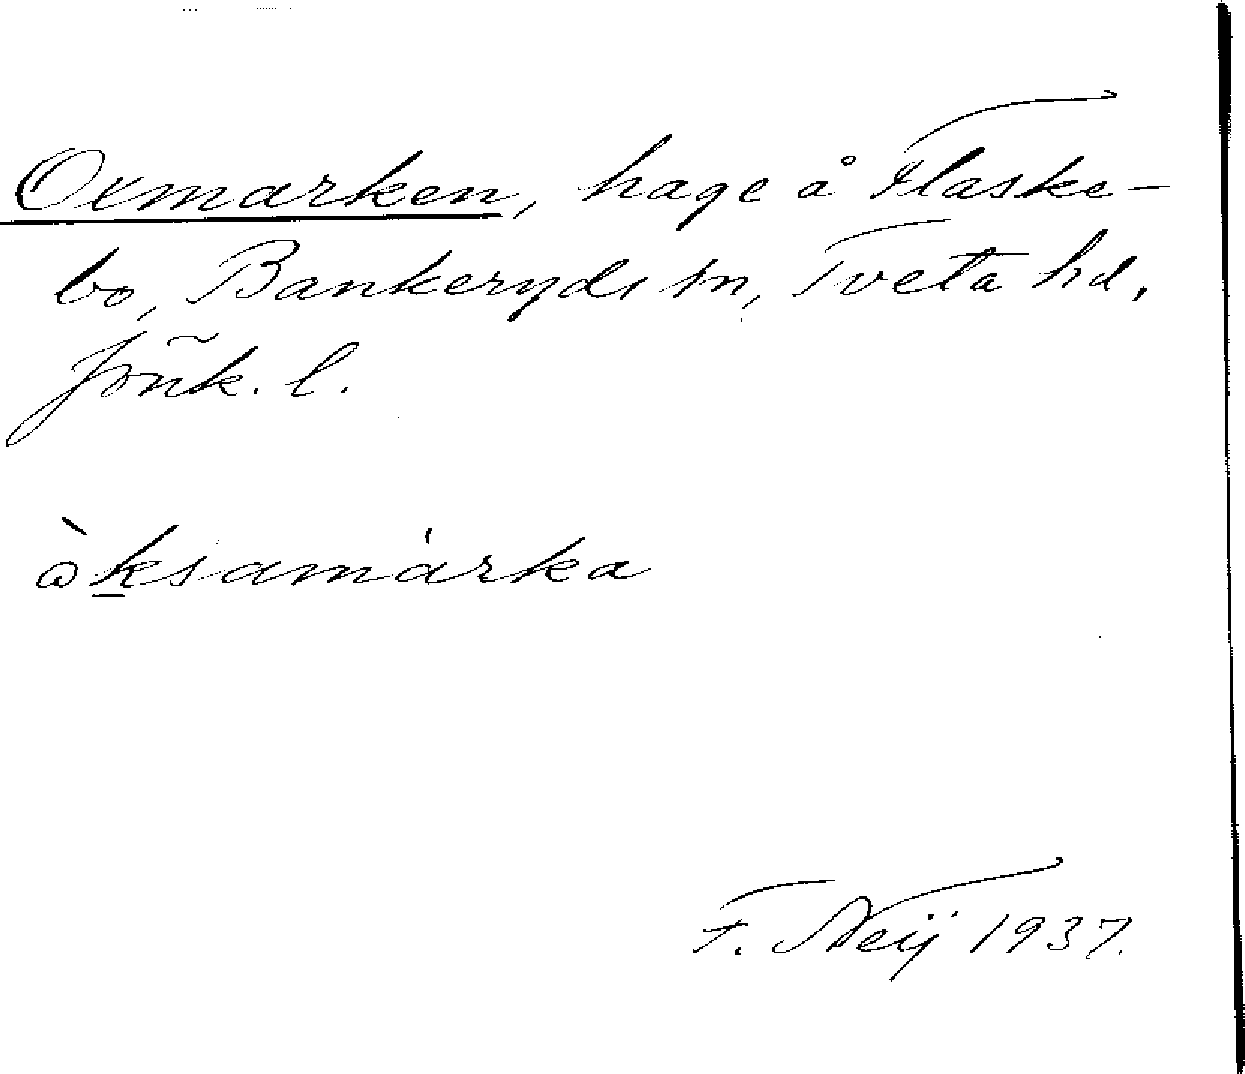 Oxmarken, hage å Flaske-
bo, Bankeryds sn, Tveta hd,
Jönk. l.
ὼksamárka
F. Neij 1937.